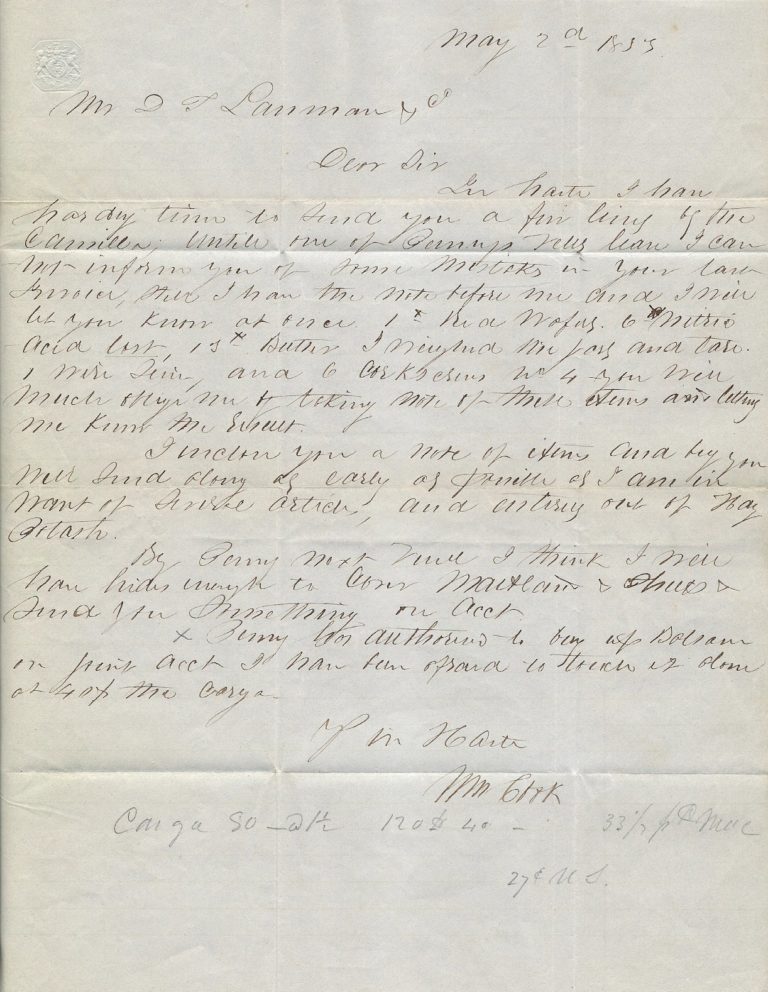 May 2d 1855
Mr D T Lanman & Co
Dear Sir
In haste I have
hardly time to send you a few lines by the
Camilla. Untill one of Pennys Vess leave I can
not inform you of some Mistakes in your last
Invoice, still I have the note before me and I will
let you know at once 1x Red Wafers. 6x Nitric
Acid lost, 13x Butter I weighed the jars and tare.
1 Wire and 6 Corkscrews No 4 you will
much oblige me by taking note of these items and letting
me know the Result.
I inclose you a note of items and beg you
will send along as early as possible as I am in
want of Severl articles, and entirely out of
Potash.
By Penny next Vessel I think I will
have hides enough to Cover Maitland &
Send you Something on Acct
x Penny has authorised to buy up Balsam
on joint Acct I have been afraid to touch it alone
at 40$ the Carga.
Y in Haste
Wm Cook
Carga 80 120$ 40 - 33 1/3 pr
27¢ U S.